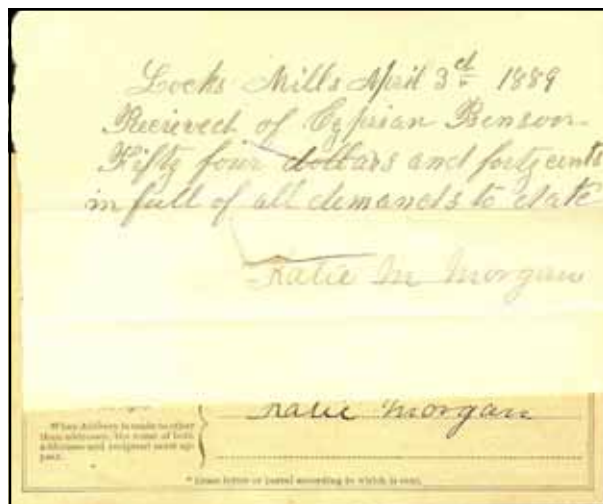 Locks Mills April 3rd 1889
Recieved of Cyprian Benson
Fifty four dollars and forty cents
in full of all demands to date
Katie M Morgan
Katie Morgan
When delivery is made to other
than addressee, the name of both
addressee and recipient must ap-
pear.
* Erase letter or parcel according to which is sent.